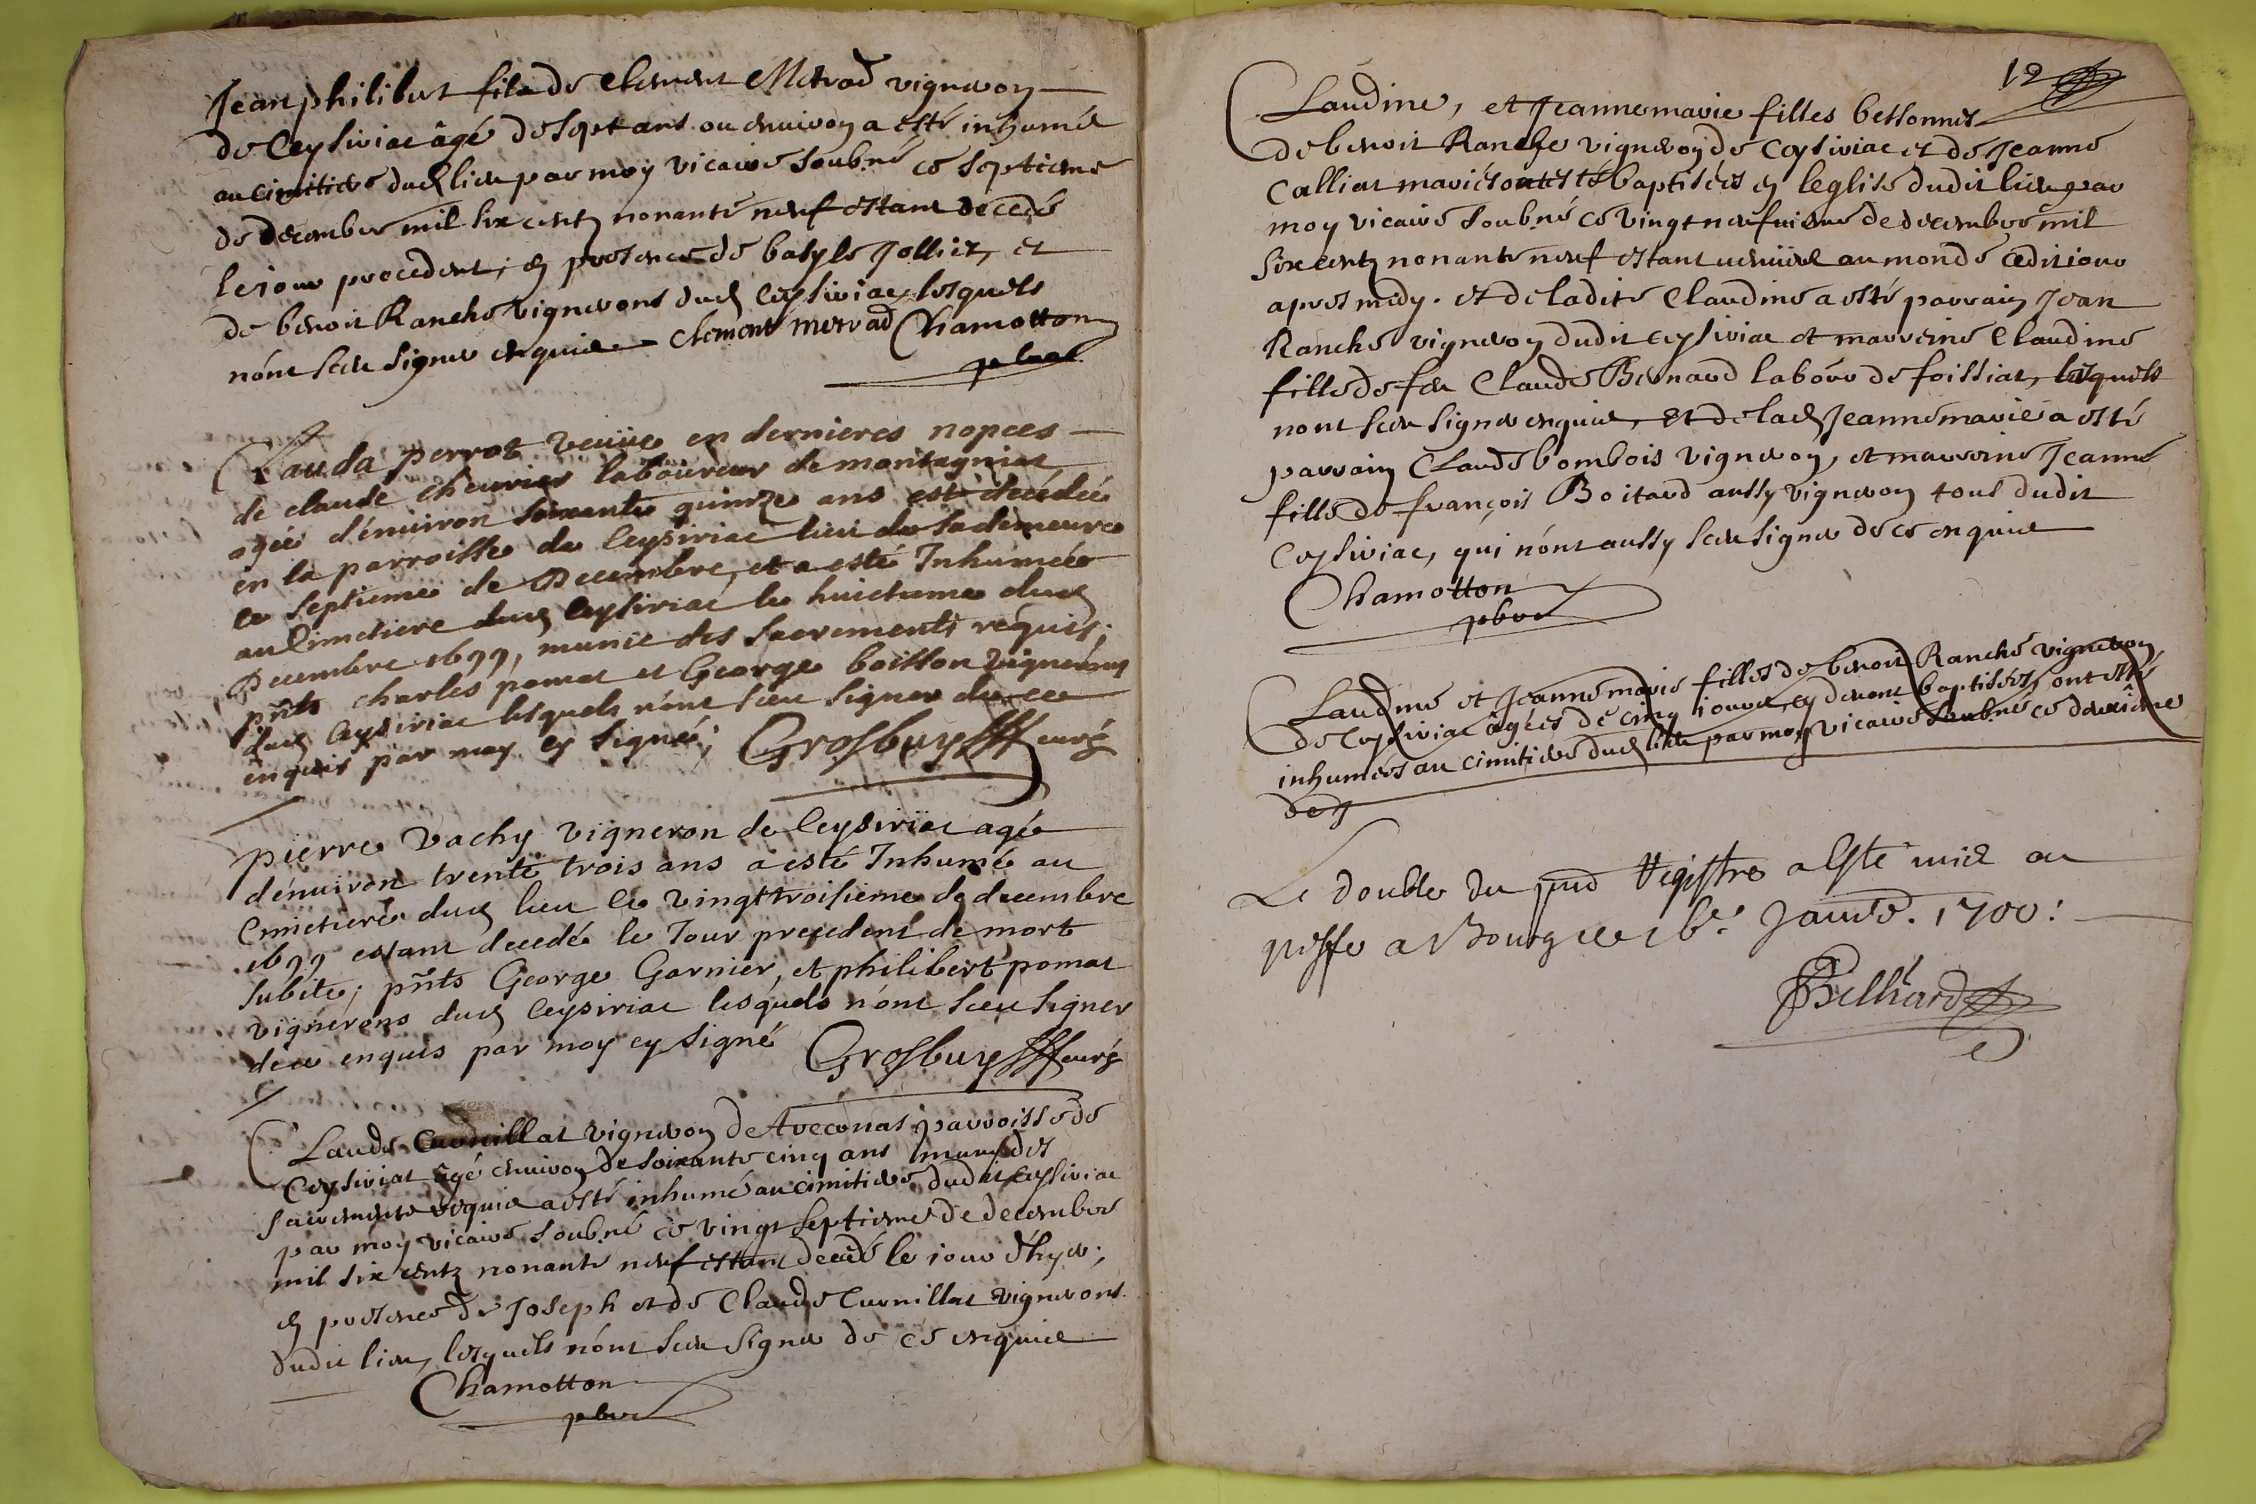 Jean philibert fils de Clement Metrad vigneron
de Ceysiriac âgé de sept ans ou enuiron a esté inhumé
au cimitiere dud lieu par moy vicaire soubné ce septieme
de decembre mil six centz nonante neuf estant decedé
le iour precedent, en presence de basyle Jolliet, et
de benoit Ranche vignerons dud Ceysiriac lesquels
nónt sceu signer enquis clement metrad Chamotton
pbre
Clauda perrot veuüe en dernieres nopces
de claude cheurier laboureur de montagniat
agée d'enuiron soixante quinze ans est decedée
en la parroisse de Ceysiriac lieu de sa demeure
le septieme de Decembre, et a esté Inhumée
au Cimetiere dud Ceysiriac le huictieme dud
Decembre 1699, munie des sacrements requis;
pnts charles pomat et George boisson vignerons
dud Ceysiriac lesquels nónt sceu signer de ce
enquis par moy cy signé; Grosbuy curé
pierre Vachy vigneron de Ceysiriat agé
dénuiron trente trois ans a esté Inhumé au
Cimetiere dud lieu le vingt troisieme de decembre
1699 estant decedé le Jour precedent de mort
subite; pnts George Garnier, et philibert pomat
vignerons dud Ceysiriac lesquels nónt sceu signer
de ce enquis par moy cy signé Grosbuy curé
Claude Curnillat vigneron de Aveconas parroisse de
Ceysiriat âgé enuiron de soixante cinq ans muny des
sacrements requis a esté inhumé au cimitiere dudit ceysiriac
par moy vicaire soubné ce vingt septieme de decembre
mil six centz nonante neuf estant decedé le iour d'hyer,
en presence de Joseph et de Claude Curnillat vignerons
dudit lieu, lesquels nónt sceu signer de ce enquis
Chamotton
pbre
12
Claudine, et Jeanne marie filles bessonnes
de benoit Ranche vigneron de Ceysiriac et de Jeanne
Calliat mariés ont esté baptisées en leglise dudit lieu par
moy vicaire soubné ce vingt neufuieme de decembre mil
six centz nonante neuf estant venuës au monde cedit iour
apres midy. et de ladite Claudine a esté parrain Jean
Ranche vigneron dudit ceysiriac et marreine Claudine
fille de feu Claude Bernard labór de foissiat, lesquels
nont sceu signer enquis, Et de lad Jeanne marie a esté
parrain Claude bombois vigneron, et marreine Jeanne
fille de françois Boitard aussy vigneron tous dudit
Ceysiriac, qui nónt aussy sceu signer de ce enquis
Chamotton
pbre
Claudine et Jeanne marie filles de benoit Ranche vigneron
de Ceysiriac âgées de cinq iours, cy devant baptisées, ont esté
inhumées au cimitiere dud lieu par moy vicaire soubné ce deuxième
de J
Le double du pnt Registre a Esté mis au
greffe a Bourg ce 16e Janvr. 1700.
Belliard